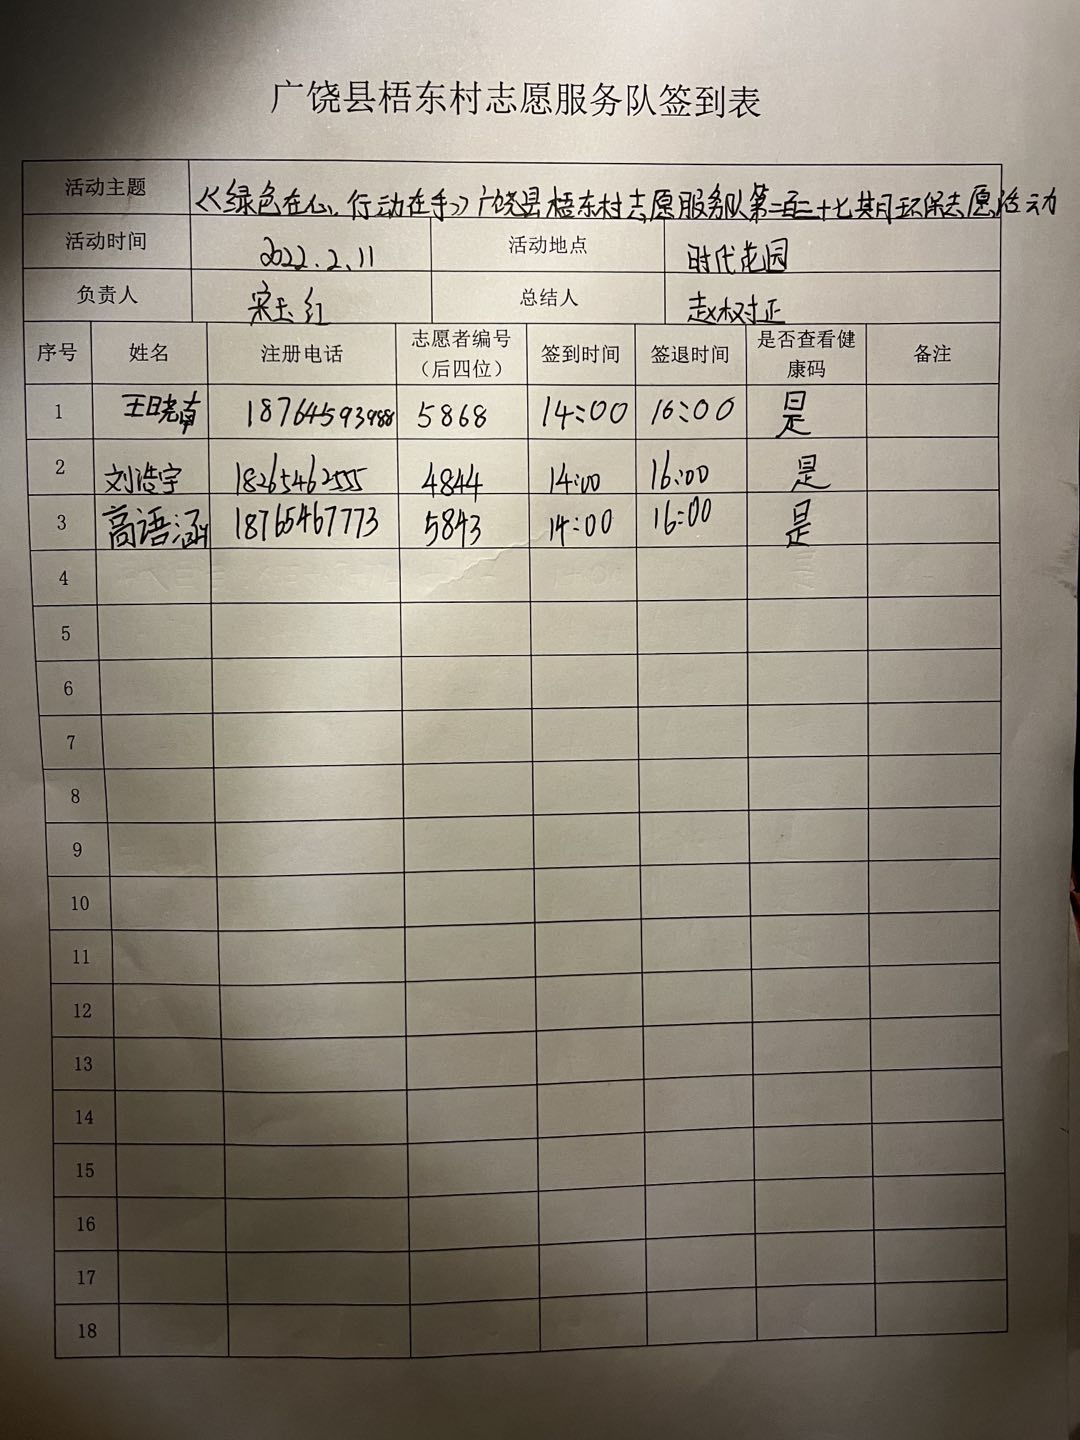 广饶县梧东村志愿服务队签到表
活动主题 《绿色在心、行动在手》广饶县梧东村志愿服务队第二百二十七期环保志愿活动
活动时间 2022.2.11 活动地点 时代花园
负责人 宋玉红 总结人 赵树正
序号 姓名 注册电话 志愿者编号 签到时间 签退时间 是否查看健 备注
（后四位） 康码
1 王晓南 18764593988 5868 14:00 16:00 是
2 刘浩宇 18265462555 4844 14:00 16:00 是
3 高语涵 18765467773 5843 14:00 16:00 是
4
5
6
7
8
9
10
11
12
13
14
15
16
17
18